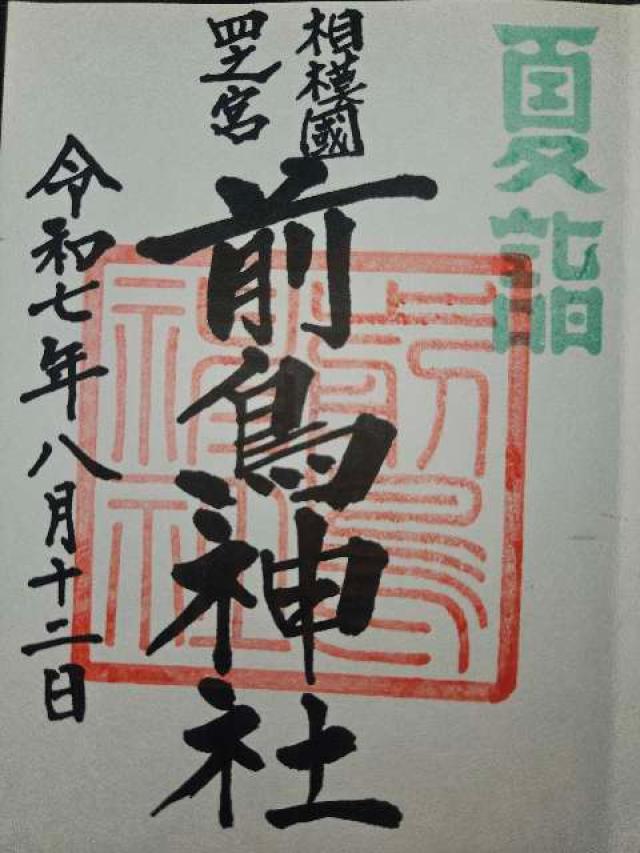 夏詣
相模國
四之宮
前鳥神社
令和七年八月十二日
前鳥
神社